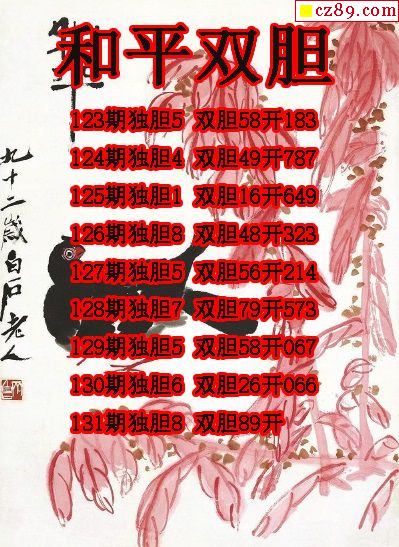 cz89.com
和平双胆
123期独胆5 双胆58开183
124期独胆4 双胆49开787
125期独胆1 双胆16开649
126期独胆8 双胆48开323
127期独胆5 双胆56开214
128期独胆7 双胆79开573
129期独胆5 双胆58开067
130期独胆6 双胆26开066
131期独胆8 双胆89开
九十二岁白石老人